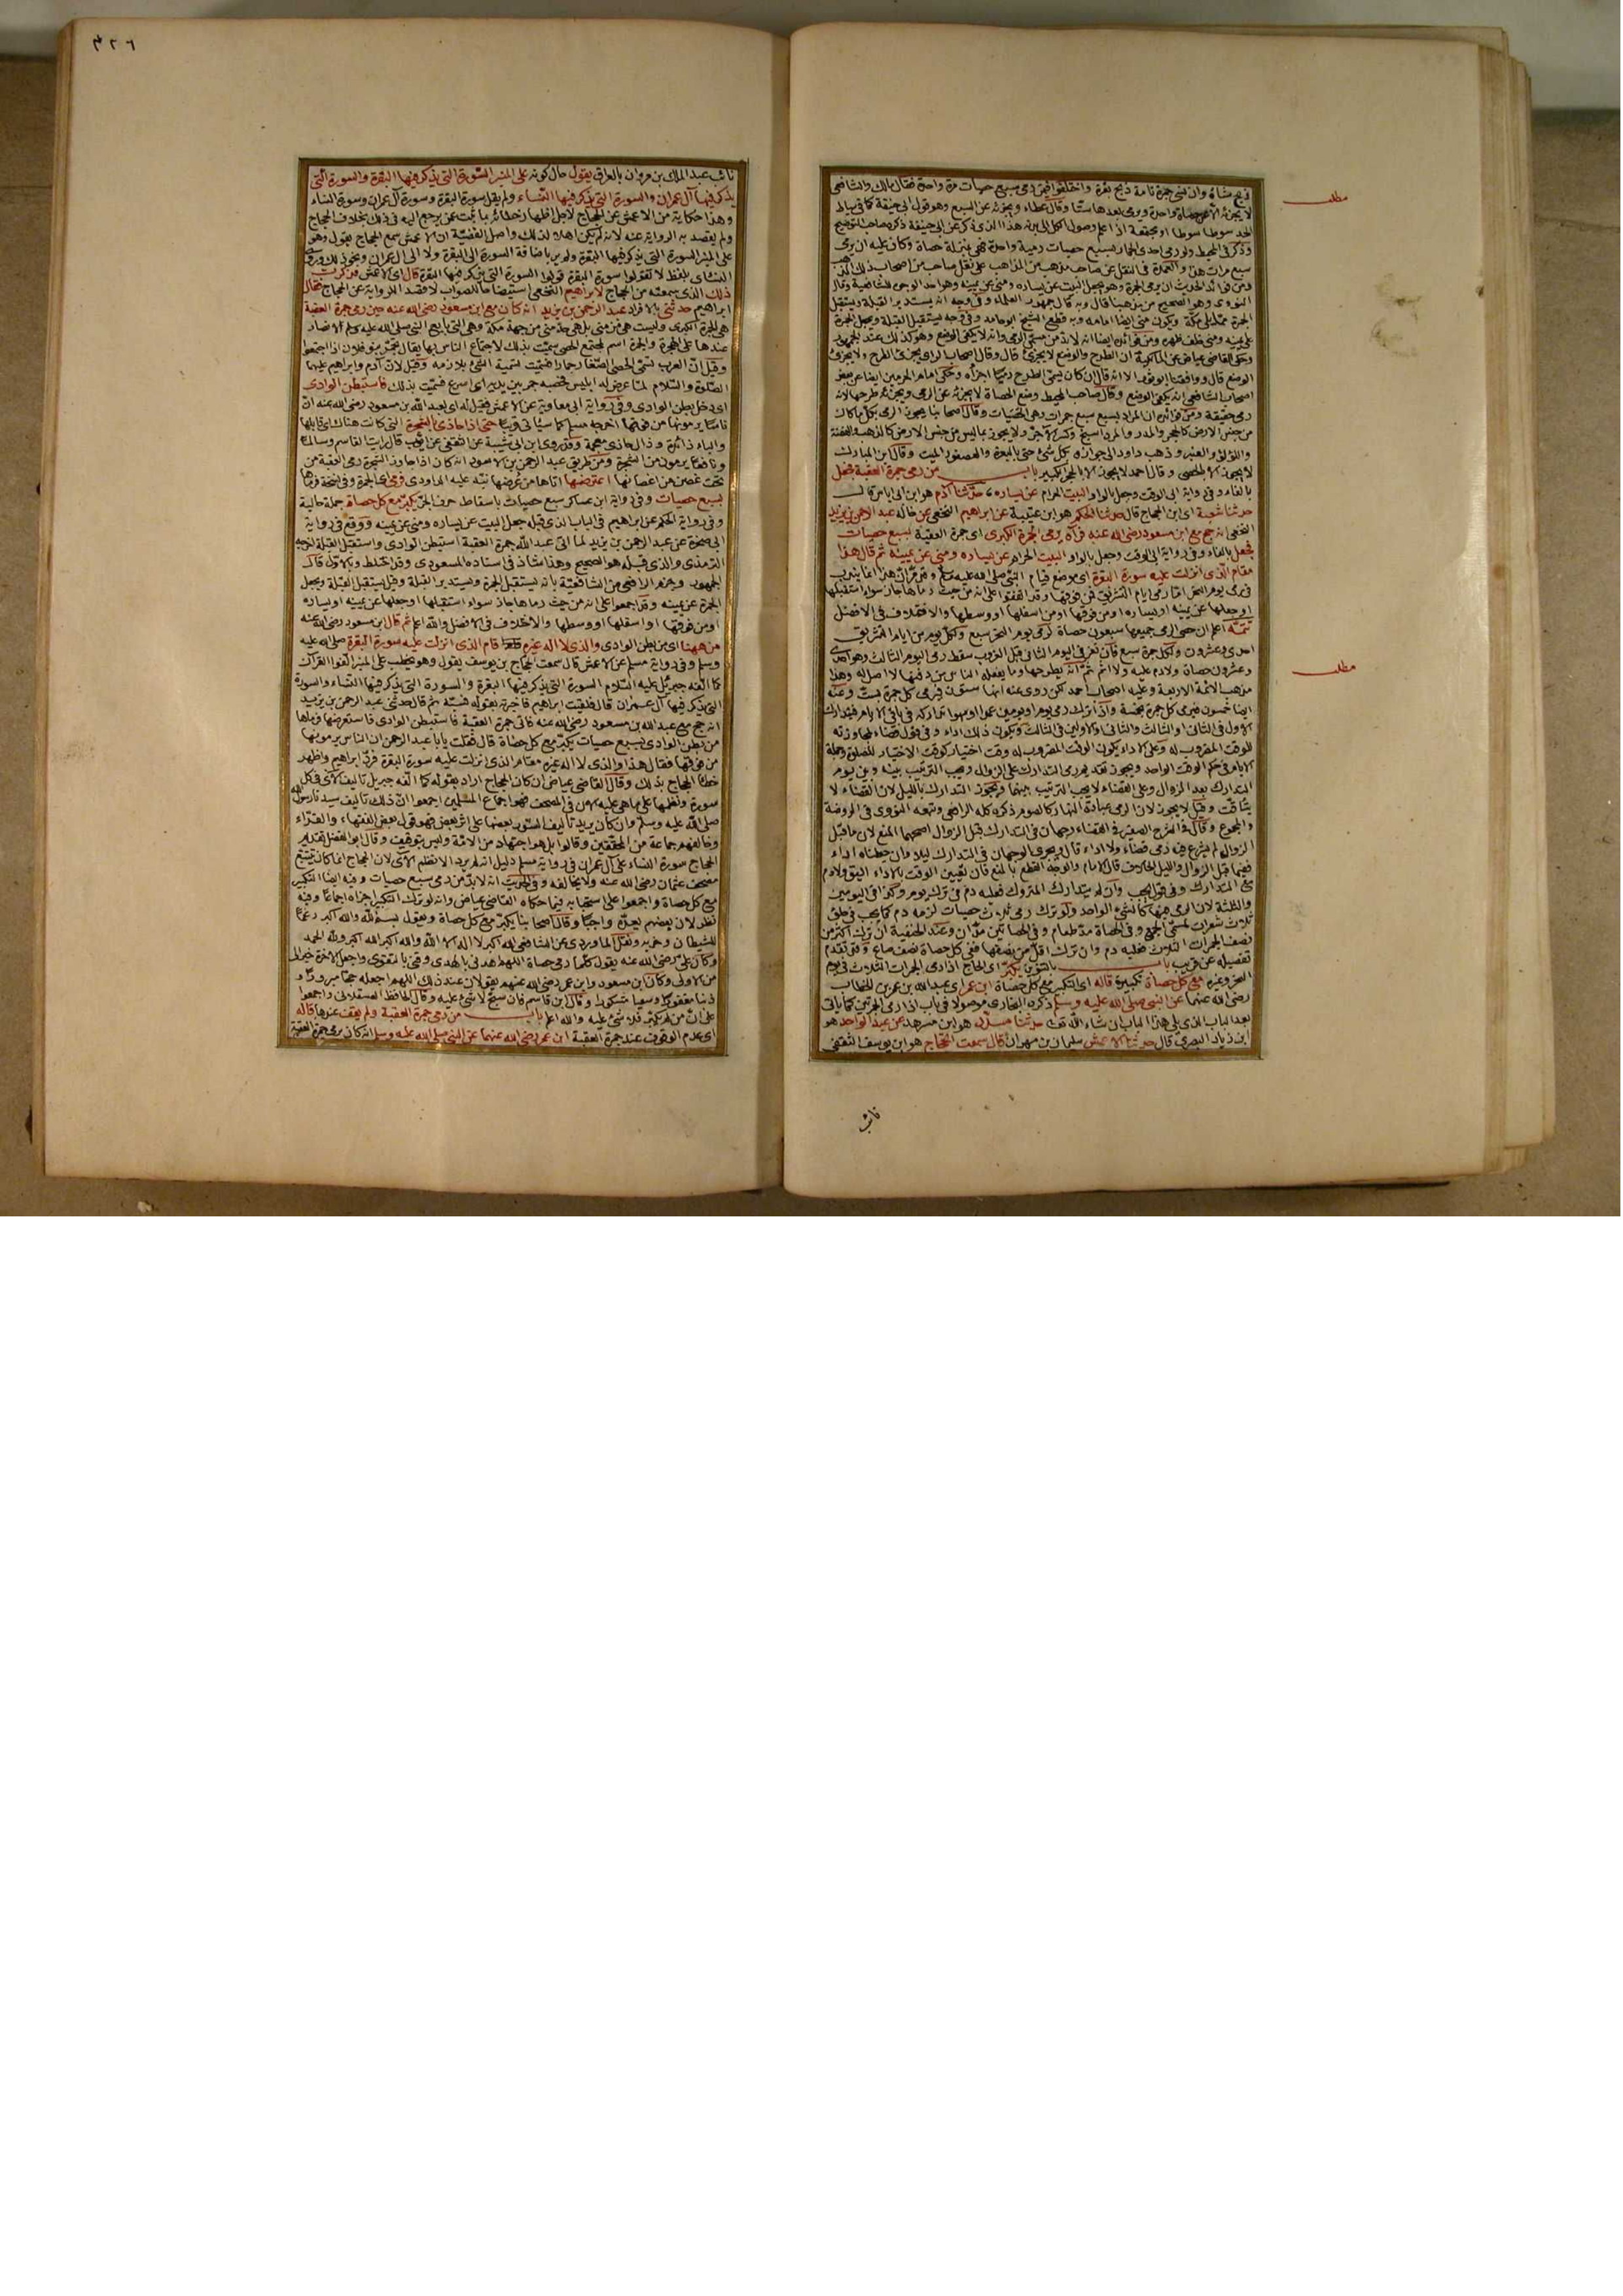 مطلب
لا يجزئه الا عن حصاة واحدة ويرمي بعدها ستا وقال عطاء ويجزئه عن السبع وهو قول ابي حنيفة كما في سياط
الحد سوطا سوطا او مجتمعة اذا علم وصول الكل الى بدنه هذا الذي ذكر عن ابي حنيفة ذكره صاحب التوضيح
وذكر في المحيط ولو رمى احدى الجمار بسبع حصيات رمية واحدة فهي بمنزلة حصاة وكان عليه ان يرمي
سبع مرات هذا والعمدة في النقل عن صاحب مذهب من المذاهب على نقل صاحب من اصحاب ذلك المذهب
ومن فوائد الحديث ان يرمي الجمرة وهو يجعل البيت عن يساره ومنى عن يمينه وهو احد الوجوه للشافعية وقال
النووي وهو الصحيح من مذهبنا قال وبه قال جمهور العلماء وفي وجه انه يستدبر القبلة ويستقبل
على يمينه ومنى خلف ظهره ومن فوائده ايضا انه لا بد من مسمى الرمي وانه لا يكفي الوضع وهو كذلك عند الجمهور
وحكى القاضي عياض عن المالكية ان الطرح والوضع لا يجزئ قال وقال اصحاب الراي يجزئ الطرح ولا يجزئ
الوضع قال ووافقنا ابو ثور الا انه قال ان كان يسمى الطرح رميا اجزأه وحكى امام الحرمين ايضا عن بعض
اصحاب الشافعي انه يكفي الوضع وقال صاحب المحيط وضع الحصاة لا يجزئه عن الرمي ويجزئه طرحها لانه
من جنس الارض كالحجر والمدر
واللؤلؤ والعنبر وذهب داود الى جوازه بكل شئ حتى بالبعرة والعصفور الميت وقال ابن المبارك
لا يجوز الا بالحصى وقال احمد لا يجوز الا بالحجر الكبير باب من رمى جمرة العقبة فجعل
بالفاء وفي رواية ابي الوقت وجعل بالواو البيت الحرام عن يساره حدثنا آدم هو ابن ابي اياس قال
حدثنا شعبة اي ابن الحجاج قال حدثنا الحكم هو ابن عتيبة عن ابراهيم النخعي عن خاله عبد الرحمن بن يزيد
النخعي انه حج مع ابن مسعود رضي الله عنه فرآه يرمي الجمرة الكبرى اي جمرة العقبة بسبع حصيات
فجعل بالفاء وفي رواية ابي الوقت وجعل بالواو البيت الحرام عن يساره ومنى عن يمينه ثم قال هذا
مقام الذي انزلت عليه سورة البقرة اي موضع قيام النبي صلى الله عليه وسلم
في رمي يوم النحر اما رمي ايام التشريق فمن فوقها وقد اتفقوا على انه من حيث رماها جاز سواء استقبلها
او جعلها عن يمينه او يساره او من فوقها او من اسفلها او وسطها والاختلاف في الافضل
تتمة اعلم ان حصى الرمي جميعها سبعون حصاة لرمي يوم النحر سبع ولكل يوم من ايام التشريق
احدى وعشرون لكل جمرة سبع فان نفر في اليوم الثاني قبل الغروب سقط رمي اليوم الثالث وهو احدى
وعشرون حصاة ولا دم عليه ولا اثم
مطلب
مذهب الائمة الاربعة وعليه اصحاب احمد لكن روى عنه انها ستون فيرمي كل جمرة بست وعنه
ايضا خمسون فيرمي كل جمرة بخمسة واذا ترك رمي يوم او يومين عمدا او سهوا تداركه في باقي الايام
الاول في الثاني او الثالث والثاني او الاولين في الثالث ويكون ذلك اداء وفي قول قضاء لمجاوزته
للوقت المضروب له وعلى الاداء يكون الوقت المضروب له وقت اختيار كوقت الاختيار للصلوة وجملة
الايام في حكم الوقت الواحد ويجوز تقديم رمي التدارك على الزوال ويجب الترتيب بينه وبين يوم
التدارك بعد الزوال وعلى القضاء لا يجب الترتيب بينهما ويجوز التدارك بالليل لان القضاء لا
يتأقت وقيل لا يجوز لان الرمي عبادة النهار كالصوم ذكره كله الرافعي وتبعه النووي في الروضة
والمجموع وقال في الشرح الصغير
ثلاث شعرات لمسمى الجمع وفي الحصاة مد طعام وفي الحصاتين مدان وعند الحنفية ان ترك اكثر من
نصف الجمرات الثلاث فعليه دم وان ترك اقل من نصفها ففي كل حصاة نصف صاع وقد تقدم
تفصيله عن قريب باب بالتنوين يكبر اي الحاج اذا رمى الجمرات الثلاث في يوم
النحر وغيره مع كل حصاة تكبيرة قاله اي التكبير مع كل حصاة ابن عمر اي عبد الله بن عمر بن الخطاب
رضي الله عنهما عن النبي صلى الله عليه وسلم ذكره البخاري موصولا في باب اذا رمى الجمرتين كما ياتي
بعد الباب الذي يلي هذا الباب ان شاء الله تعالى حدثنا مسدد هو ابن مسرهد عن عبد الواحد هو
ابن زياد البصري قال حدثنا الاعمش سليمان بن مهران قال سمعت الحجاج هو ابن يوسف الثقفي
نائب
٣٢٦
نائب عبد الملك بن مروان بالعراق يقول حال كونه على المنبر السورة التي يذكر فيها البقرة والسورة التي
يذكر فيها آل عمران والسورة التي يذكر فيها النساء ولم يقل سورة البقرة وسورة آل عمران وسورة النساء
ولم يقصد به الرواية عنه لانه لم يكن اهلا لذلك واصل القضية ان الاعمش سمع الحجاج يقول وهو
على المنبر السورة التي يذكر فيها البقرة
النسائي بلفظ لا تقولوا سورة البقرة قولوا السورة التي يذكر فيها البقرة قال اي الاعمش فذكرت
ذلك الذي سمعته من الحجاج لابراهيم النخعي استيضاحا للصواب لا قصد الرواية عن الحجاج فقال
ابراهيم حدثني بالافراد عبد الرحمن بن يزيد انه كان مع ابن مسعود رضي الله عنه حين رمى جمرة العقبة
هي الجمرة الكبرى وليست هي من منى بل هي حد منى من جهة مكة وهي التي بايع النبي صلى الله عليه وسلم الانصار
عندها على الهجرة والجمرة اسم لمجتمع الحصى سميت بذلك لاجتماع الناس بها يقال تجمر بنو فلان اذا اجتمعوا
وقيل ان العرب تسمي الحصى الصغار جمارا فسميت تسمية الشئ بلازمه وقيل لان آدم وابراهيم عليهما
الصلوة والسلام لما عرض له ابليس فحصبه جمر بين يديه اي اسرع فسميت بذلك فاستبطن الوادي
اي دخل بطن الوادي وفي رواية ابي معاوية عن الاعمش فقيل له اي لعبد الله بن مسعود رضي الله عنه ان
ناسا يرمونها من فوقها اخرجه مسلم كما سيأتي قريبا حتى اذا حاذى بالشجرة التي كانت هناك اي قابلها
والباء زائدة وذال حاذى معجمة وقد روى ابن ابي شيبة عن الثقفي عن ايوب قال رأيت القاسم وسالما
ونافعا يرمون من الشجرة ومن طريق عبد الرحمن بن الاسود انه كان اذا جاوز الشجرة رمى العقبة من
تحت غصن من اغصانها اعترضها اتاها من عرضها نبه عليه الداودي فرمى اي الجمرة وفي نسخة فرماها
بسبع حصيات وفي رواية ابن عساكر سبع حصيات باسقاط حرف الجر يكبر مع كل حصاة جملة حالية
وفي رواية الحكم عن ابراهيم في الباب الذي قبله جعل البيت عن يساره ومنى عن يمينه ووقع في رواية
ابي صخرة عن عبد الرحمن بن يزيد لما اتى عبد الله جمرة العقبة استبطن الوادي واستقبل القبلة اخرجه
الترمذي والذي قبله هو الصحيح وهذا شاذ في اسناده المسعودي وقد اختلط وبالاول قال
الجمهور وجزم الرافعي من الشافعية بانه يستقبل الجمرة ويستدبر القبلة وقيل يستقبل القبلة ويجعل
الجمرة عن يمينه وقد اجمعوا على انه من حيث رماها جاز سواء استقبلها او جعلها عن يمينه او يساره
او من فوقها او اسفلها او وسطها والاختلاف في الافضل والله اعلم ثم قال ابن مسعود رضي الله عنه
من ههنا اي من بطن الوادي والذي لا اله غيره قام الذي انزلت عليه سورة البقرة صلى الله عليه
وسلم وفي رواية مسلم عن الاعمش قال سمعت الحجاج بن يوسف يقول وهو يخطب على المنبر الفوا القرآن
كما الفه جبريل عليه السلام السورة التي يذكر فيها البقرة والسورة التي يذكر فيها النساء والسورة
التي يذكر فيها آل عمران قال فلقيت ابراهيم فاخبرته بقوله فسبه ثم قال حدثني عبد الرحمن بن يزيد
انه حج مع عبد الله بن مسعود رضي الله عنه فاتى جمرة العقبة فاستبطن الوادي فاستعرضها فرماها
من بطن الوادي بسبع حصيات يكبر مع كل حصاة قال فقلت يا ابا عبد الرحمن ان الناس يرمونها
من فوقها فقال هذا والذي لا اله غيره مقام الذي انزلت عليه سورة البقرة فرد ابراهيم واظهر
خطأ الحجاج بذلك وقال القاضي عياض ان كان الحجاج اراد بقوله كما الفه جبريل تاليف الآي في كل
سورة ونظمها على ما هي عليه الآن في المصحف فهو اجماع المسلمين اجمعوا ان ذلك تاليف سيدنا رسول الله
صلى الله عليه وسلم وان كان يريد تاليف السور بعضها على اثر بعض فهو قول بعض الفقهاء والقراء
وخالفهم جماعة من المحققين وقالوا بل هو اجتهاد من الائمة وليس بتوقيف وقال ابو الفضل تقديم
الحجاج سورة النساء على آل عمران في رواية مسلم دليل انه لم يرد الا نظم الآي لان الحجاج انما كان يتبع
مصحف عثمان رضي الله عنه ولا يخالفه وفي الحديث انه لا بد من رمي سبع حصيات وفيه ايضا التكبير
مع كل حصاة واجمعوا على استحبابه فيما حكاه القاضي عياض وانه لو ترك التكبير اجزاه اجماعا وفيه
نظر لان بعضهم يعده واجبا وقال اصحابنا يكبر مع كل حصاة ويقول بسم الله والله اكبر رغما
للشيطان وحزبه ونقل الماوردي عن الشافعي الله اكبر لا اله الا الله والله اكبر الله اكبر ولله الحمد
وكان علي رضي الله عنه يقول كلما رمى حصاة اللهم اهدني بالهدى وقني بالتقوى واجعل الآخرة خيرا لي
من الاولى وكان ابن مسعود وابن عمر رضي الله عنهم يقولان عند ذلك اللهم اجعله حجا مبرورا و
ذنبا مغفورا وسعيا مشكورا وقال ابن قاسم فان سبح لا شئ عليه وقال الحافظ العسقلاني واجمعوا
على ان من لم يكبر فلا شئ عليه والله اعلم باب من رمى جمرة العقبة ولم يقف عندها قاله
اي عدم الوقوف عند جمرة العقبة ابن عمر رضي الله عنهما عن النبي صلى الله عليه وسلم انه كان يرمي جمرة العقبة